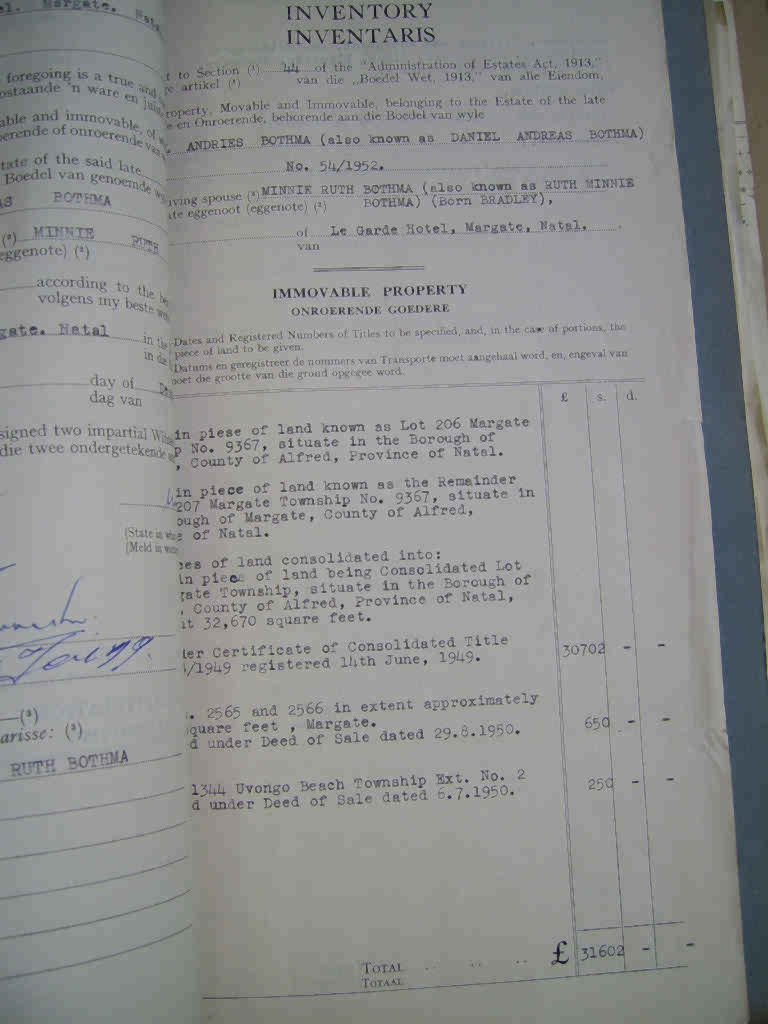 Margate, Nata
foregoing is a true and
ostaande 'n ware en juis
able and immovable, of w
erende of onroerende van
state of the said late
Boedel van genoemde
AS BOTHMA
(²) MINNIE RUTH
eggenote) (²)
according to the be
volgens my beste
gate. Natal in the
in di
day of
dag van
signed two impartial Wi
die twee ondergetekende
(State in
(Meld in
—(³)
arisse: (³)
RUTH BOTHMA
INVENTORY
INVENTARIS
t to Section (¹) 44 of the "Administration of Estates Act, 1913,"
e artikel (¹) van die „Boedel Wet, 1913," van alle Eiendom,
roperty, Movable and Immovable, belonging to the Estate of the late
e en Onroerende, behorende aan die Boedel van wyle
ANDRIES BOTHMA (also known as DANIEL ANDREAS BOTHMA)
No. 54/1952.
iving spouse (²) MINNIE RUTH BOTHMA (also known as RUTH MINNIE
te eggenoot (eggenote) (²) BOTHMA) (Born BRADLEY),
of Le Garde Hotel, Margate, Natal.
van
IMMOVABLE PROPERTY
ONROERENDE GOEDERE
Dates and Registered Numbers of Titles to be specified, and, in the case of portions, the
piece of land to be given.
Datums en geregistreer de nommers van Transporte moet aangehaal word, en, engeval van
moet die grootte van die grond opgegee word.
£ s. d.
in piese of land known as Lot 206 Margate
p No. 9367, situate in the Borough of
, County of Alfred, Province of Natal.
in piece of land known as the Remainder
207 Margate Township No. 9367, situate in
ough of Margate, County of Alfred,
e of Natal.
es of land consolidated into:
in piece of land being Consolidated Lot
gate Township, situate in the Borough of
, County of Alfred, Province of Natal,
t 32,670 square feet.
er Certificate of Consolidated Title
/1949 registered 14th June, 1949. 30702 - -
. 2565 and 2566 in extent approximately
square feet , Margate. 650 - -
d under Deed of Sale dated 29.8.1950.
1344 Uvongo Beach Township Ext. No. 2 250 - -
d under Deed of Sale dated 6.7.1950.
TOTAL .. .. .. £ 31602 - -
TOTAAL